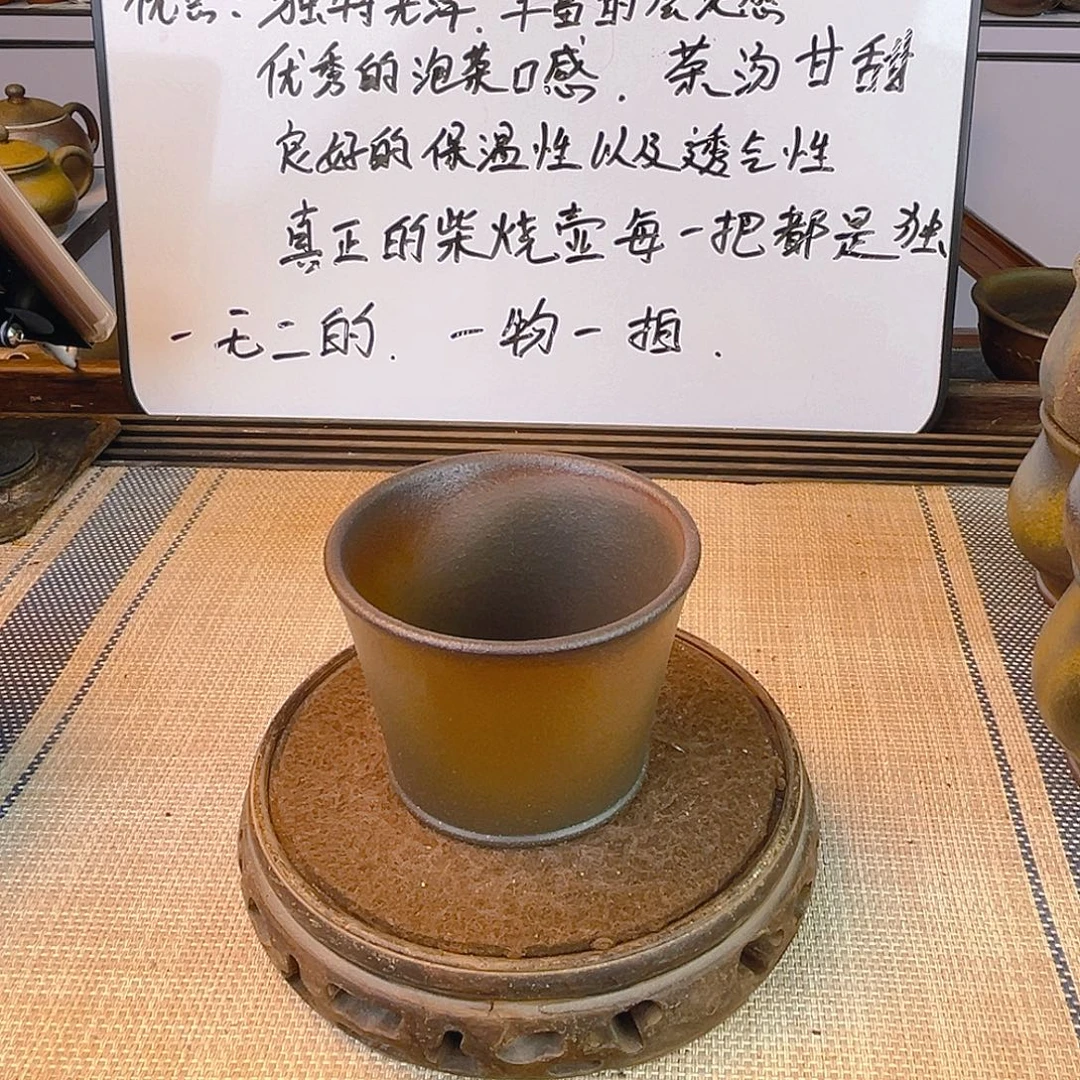 优点:独特光泽.丰富的层次感
优秀的泡茶口感.茶汤甘甜
良好的保温性以及透气性
真正的柴烧壶每一把都是独
一无二的.一物一拍.